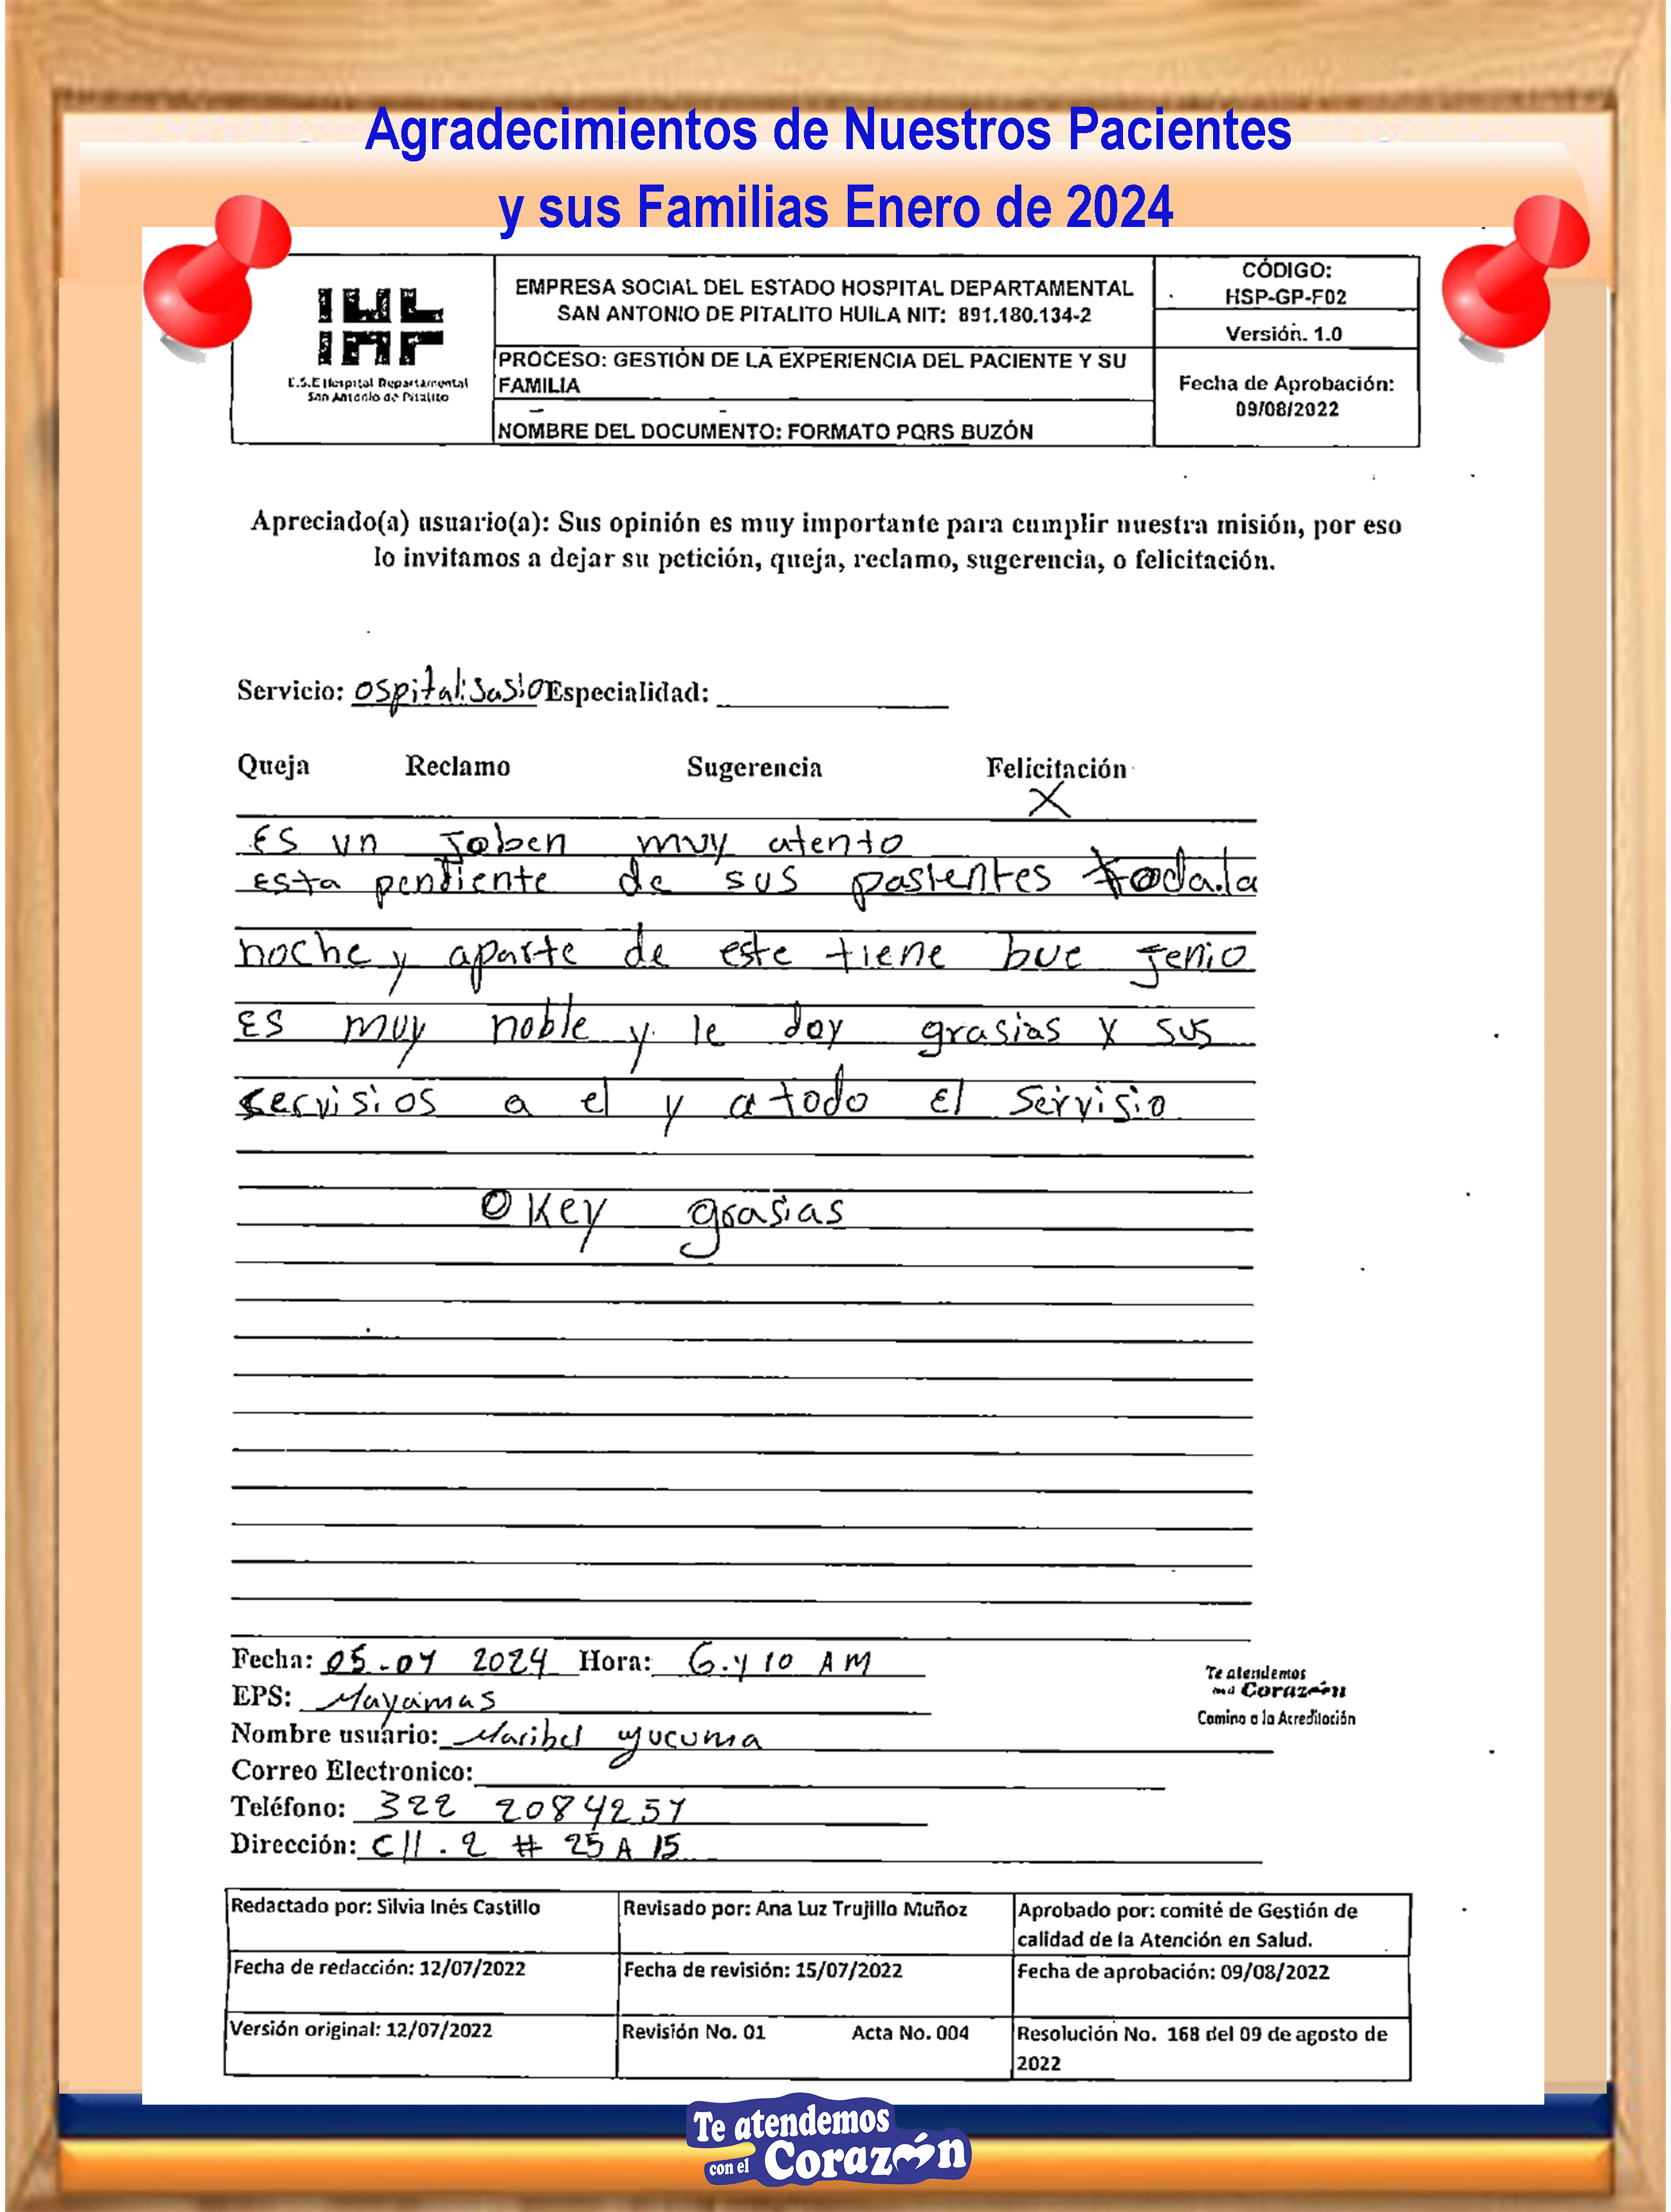 Agradecimientos de Nuestros Pacientes
y sus Familias Enero de 2024
E.S.E Hospital Departamental
San Antonio de Pitalito
EMPRESA SOCIAL DEL ESTADO HOSPITAL DEPARTAMENTAL
SAN ANTONIO DE PITALITO HUILA NIT: 891.180.134-2
PROCESO: GESTIÓN DE LA EXPERIENCIA DEL PACIENTE Y SU
FAMILIA
NOMBRE DEL DOCUMENTO: FORMATO PQRS BUZÓN
CÓDIGO:
HSP-GP-F02
Versión. 1.0
Fecha de Aprobación:
09/08/2022
Apreciado(a) usuario(a): Sus opinión es muy importante para cumplir nuestra misión, por eso
lo invitamos a dejar su petición, queja, reclamo, sugerencia, o felicitación.
Servicio: ospitalisasio Especialidad:
Queja Reclamo Sugerencia Felicitación
X
Es un Joben muy atento
Esta pendiente de sus pasientes toda la
noche y aparte de este tiene bue jenio
Es muy noble y le doy grasias x sus
servisios a el y a todo El Servisio
Okey grasias
Fecha: 05-01 2024 Hora: 6.y 10 AM
EPS: Mayamas
Nombre usuario: Maribel yucuma
Correo Electronico:
Teléfono: 322 2084251
Dirección: Cll. 2 # 25 A 15
Te atendemos
Corazón
Camino a la Acreditación
Redactado por: Silvia Inés Castillo
Revisado por: Ana Luz Trujillo Muñoz
Aprobado por: comité de Gestión de
calidad de la Atención en Salud.
Fecha de redacción: 12/07/2022
Fecha de revisión: 15/07/2022
Fecha de aprobación: 09/08/2022
Versión original: 12/07/2022
Revisión No. 01 Acta No. 004
Resolución No. 168 del 09 de agosto de
2022
Te atendemos
con el Corazón